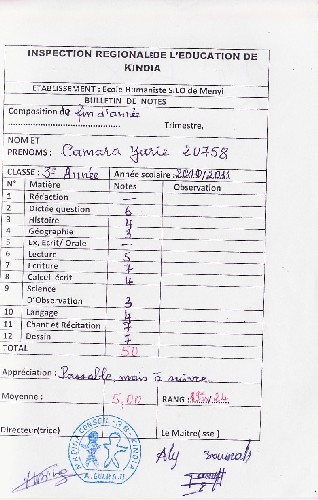 INSPECTION REGIONALE DE L'EDUCATION DE
KINDIA
ETABLISSEMENT : Ecole Humaniste SILO de Menyi
BULLETIN DE NOTES
Composition de fin d'année
Trimestre,
NOM ET
PRENOMS : Camara Yarie 20758
CLASSE : 3e Année Année scolaire : 2010/2011
N° Matière Notes Observation
1 Rédaction —
2 Dictée question 6
3 Histoire 4
4 Géographie 3
5 Ex, Ecrit/ Orale —
6 Lecture 5
7 Ecriture 7
8 Calcul écrit 4
9 Science
D'Observation 3
10 Langage 4
11 Chant et Récitation 7
12 Dessin 7
TOTAL 50
Appréciation : Passable, mais à suivre
Moyenne : 5,00 RANG : /24
Directeur(trice) Le Maitre( sse )
Aly